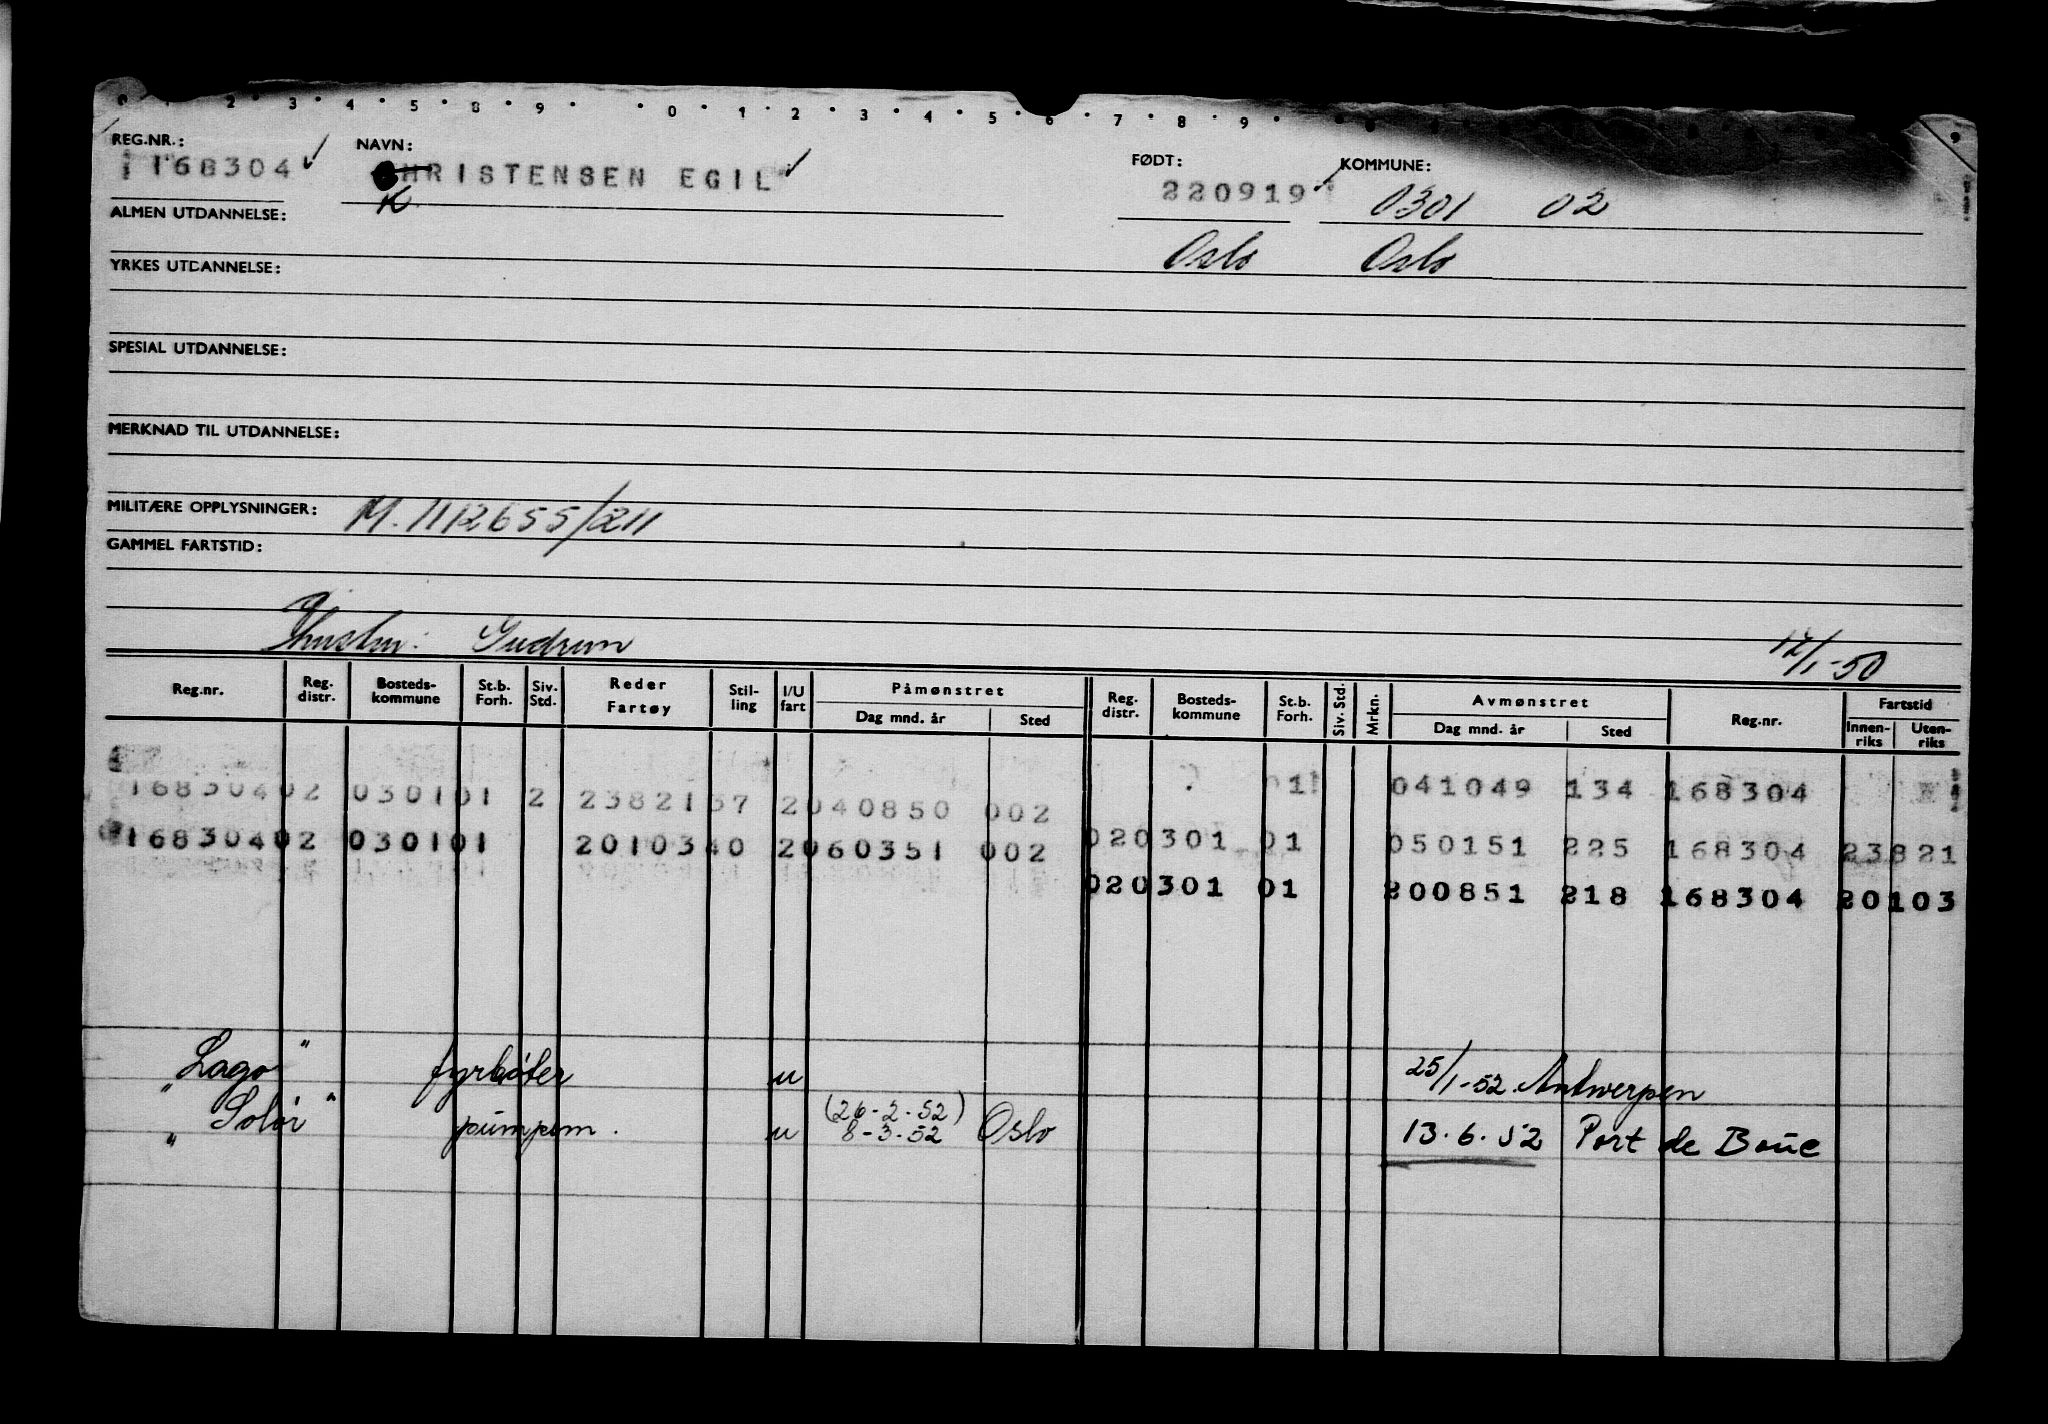 2 3 4 5 8 9 0 1 2 3 4 5 6 7 8 9
REG.NR.: NAVN: FØDT: KOMMUNE:
168304 CHRISTENSEN EGIL 220919 0301 02
K
ALMEN UTDANNELSE:
Oslo Oslo
YRKES UTDANNELSE:
SPESIAL UTDANNELSE:
MERKNAD TIL UTDANNELSE:
MILITÆRE OPPLYSNINGER: M. 1112655/211
GAMMEL FARTSTID:
Hustru: Gudrun 12/1-50
Reg.nr. Reg. distr. Bosteds-kommune St.b. Forh. Siv. Std. Reder Fartøy Stil-ling I/U fart Påmønstret Dag mnd. år Sted Reg. distr. Bosteds-kommune St.b. Forh. Siv. Std. Mrkn. Avmønstret Dag mnd. år Sted Reg.nr. Fartstid Innen-riks Uten-riks
01 041049 134 168304
16830402 030101 2 2382137 2040850 002
020301 01 050151 225 168304 23821
16830402 030101 2010340 2060351 002
020301 01 200851 218 168304 20103
"Lago" fyrbøter u 25/1-52 Antwerpen
"Solør" pumpem. u (26-2-52) 8-3-52 Oslo 13.6.52 Port de Boue